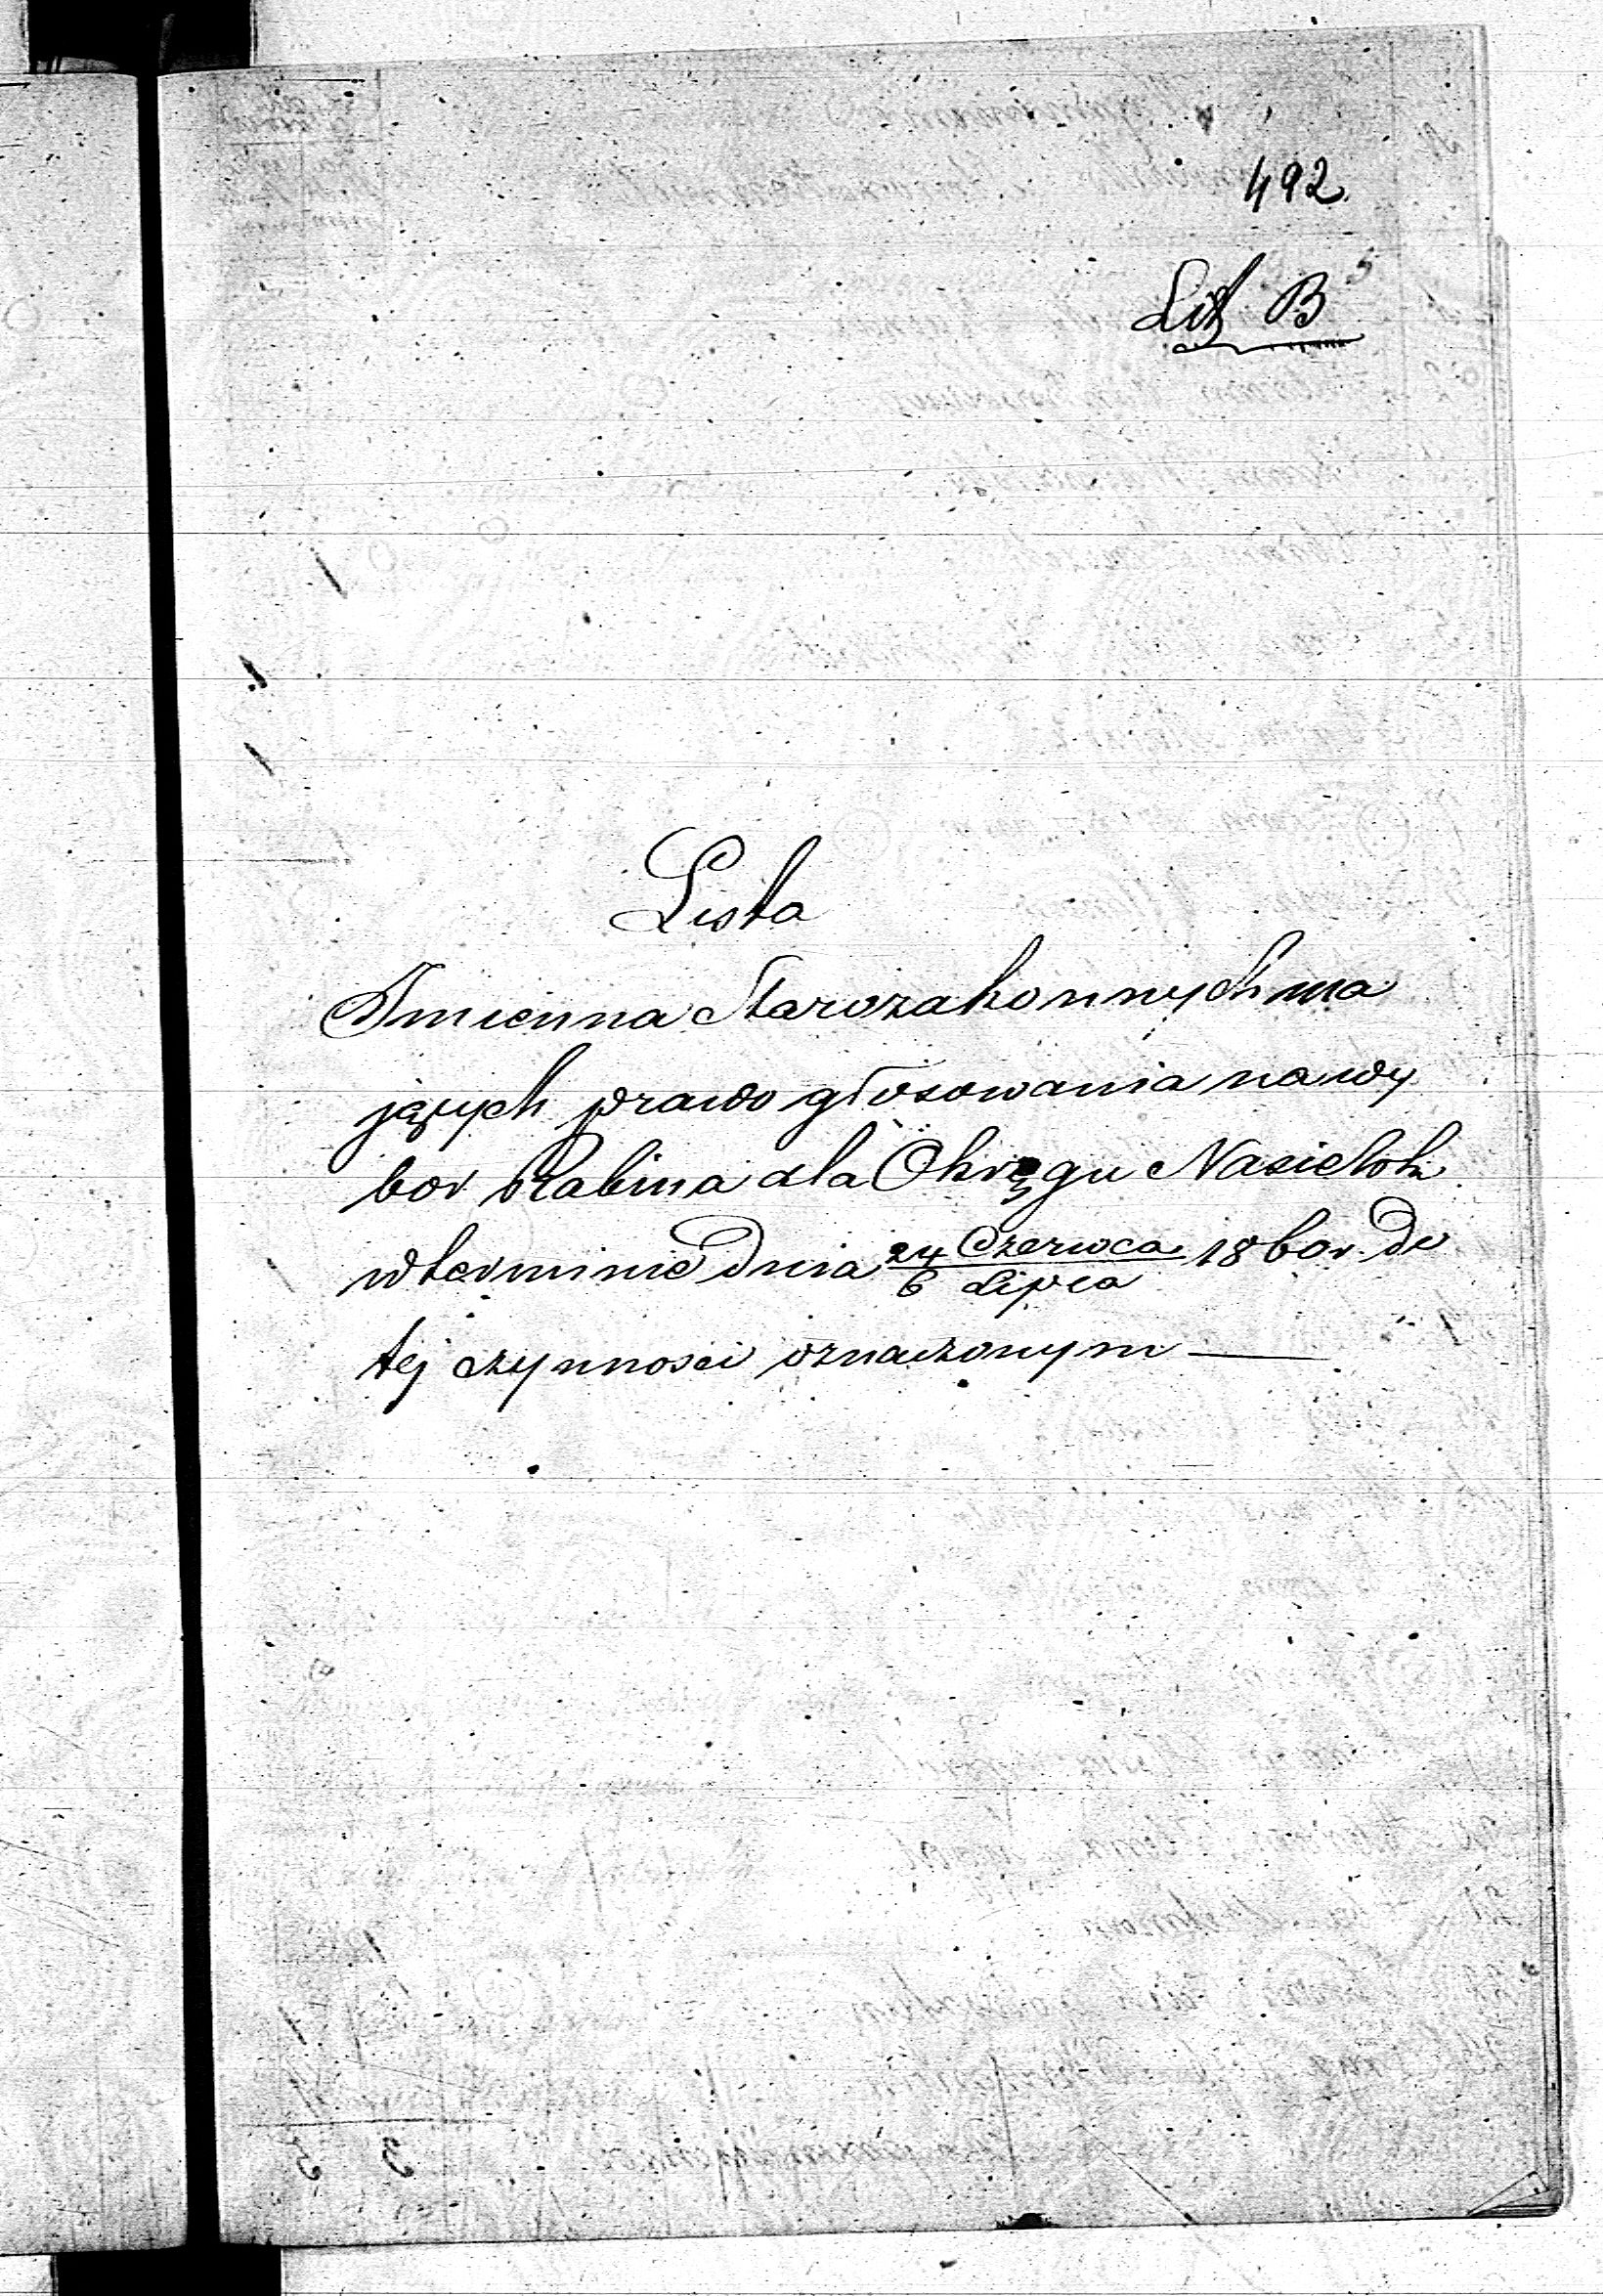 492.
Lit B
Lista
Imienna Starozakonnych ma
jących prawo głosowania na wy
bor Rabina dla Okręgu Nasielsk
w terminie dnia 24 Czerwca / 6 Lipca 1860 r. do
tej czynnosci oznaczonym —